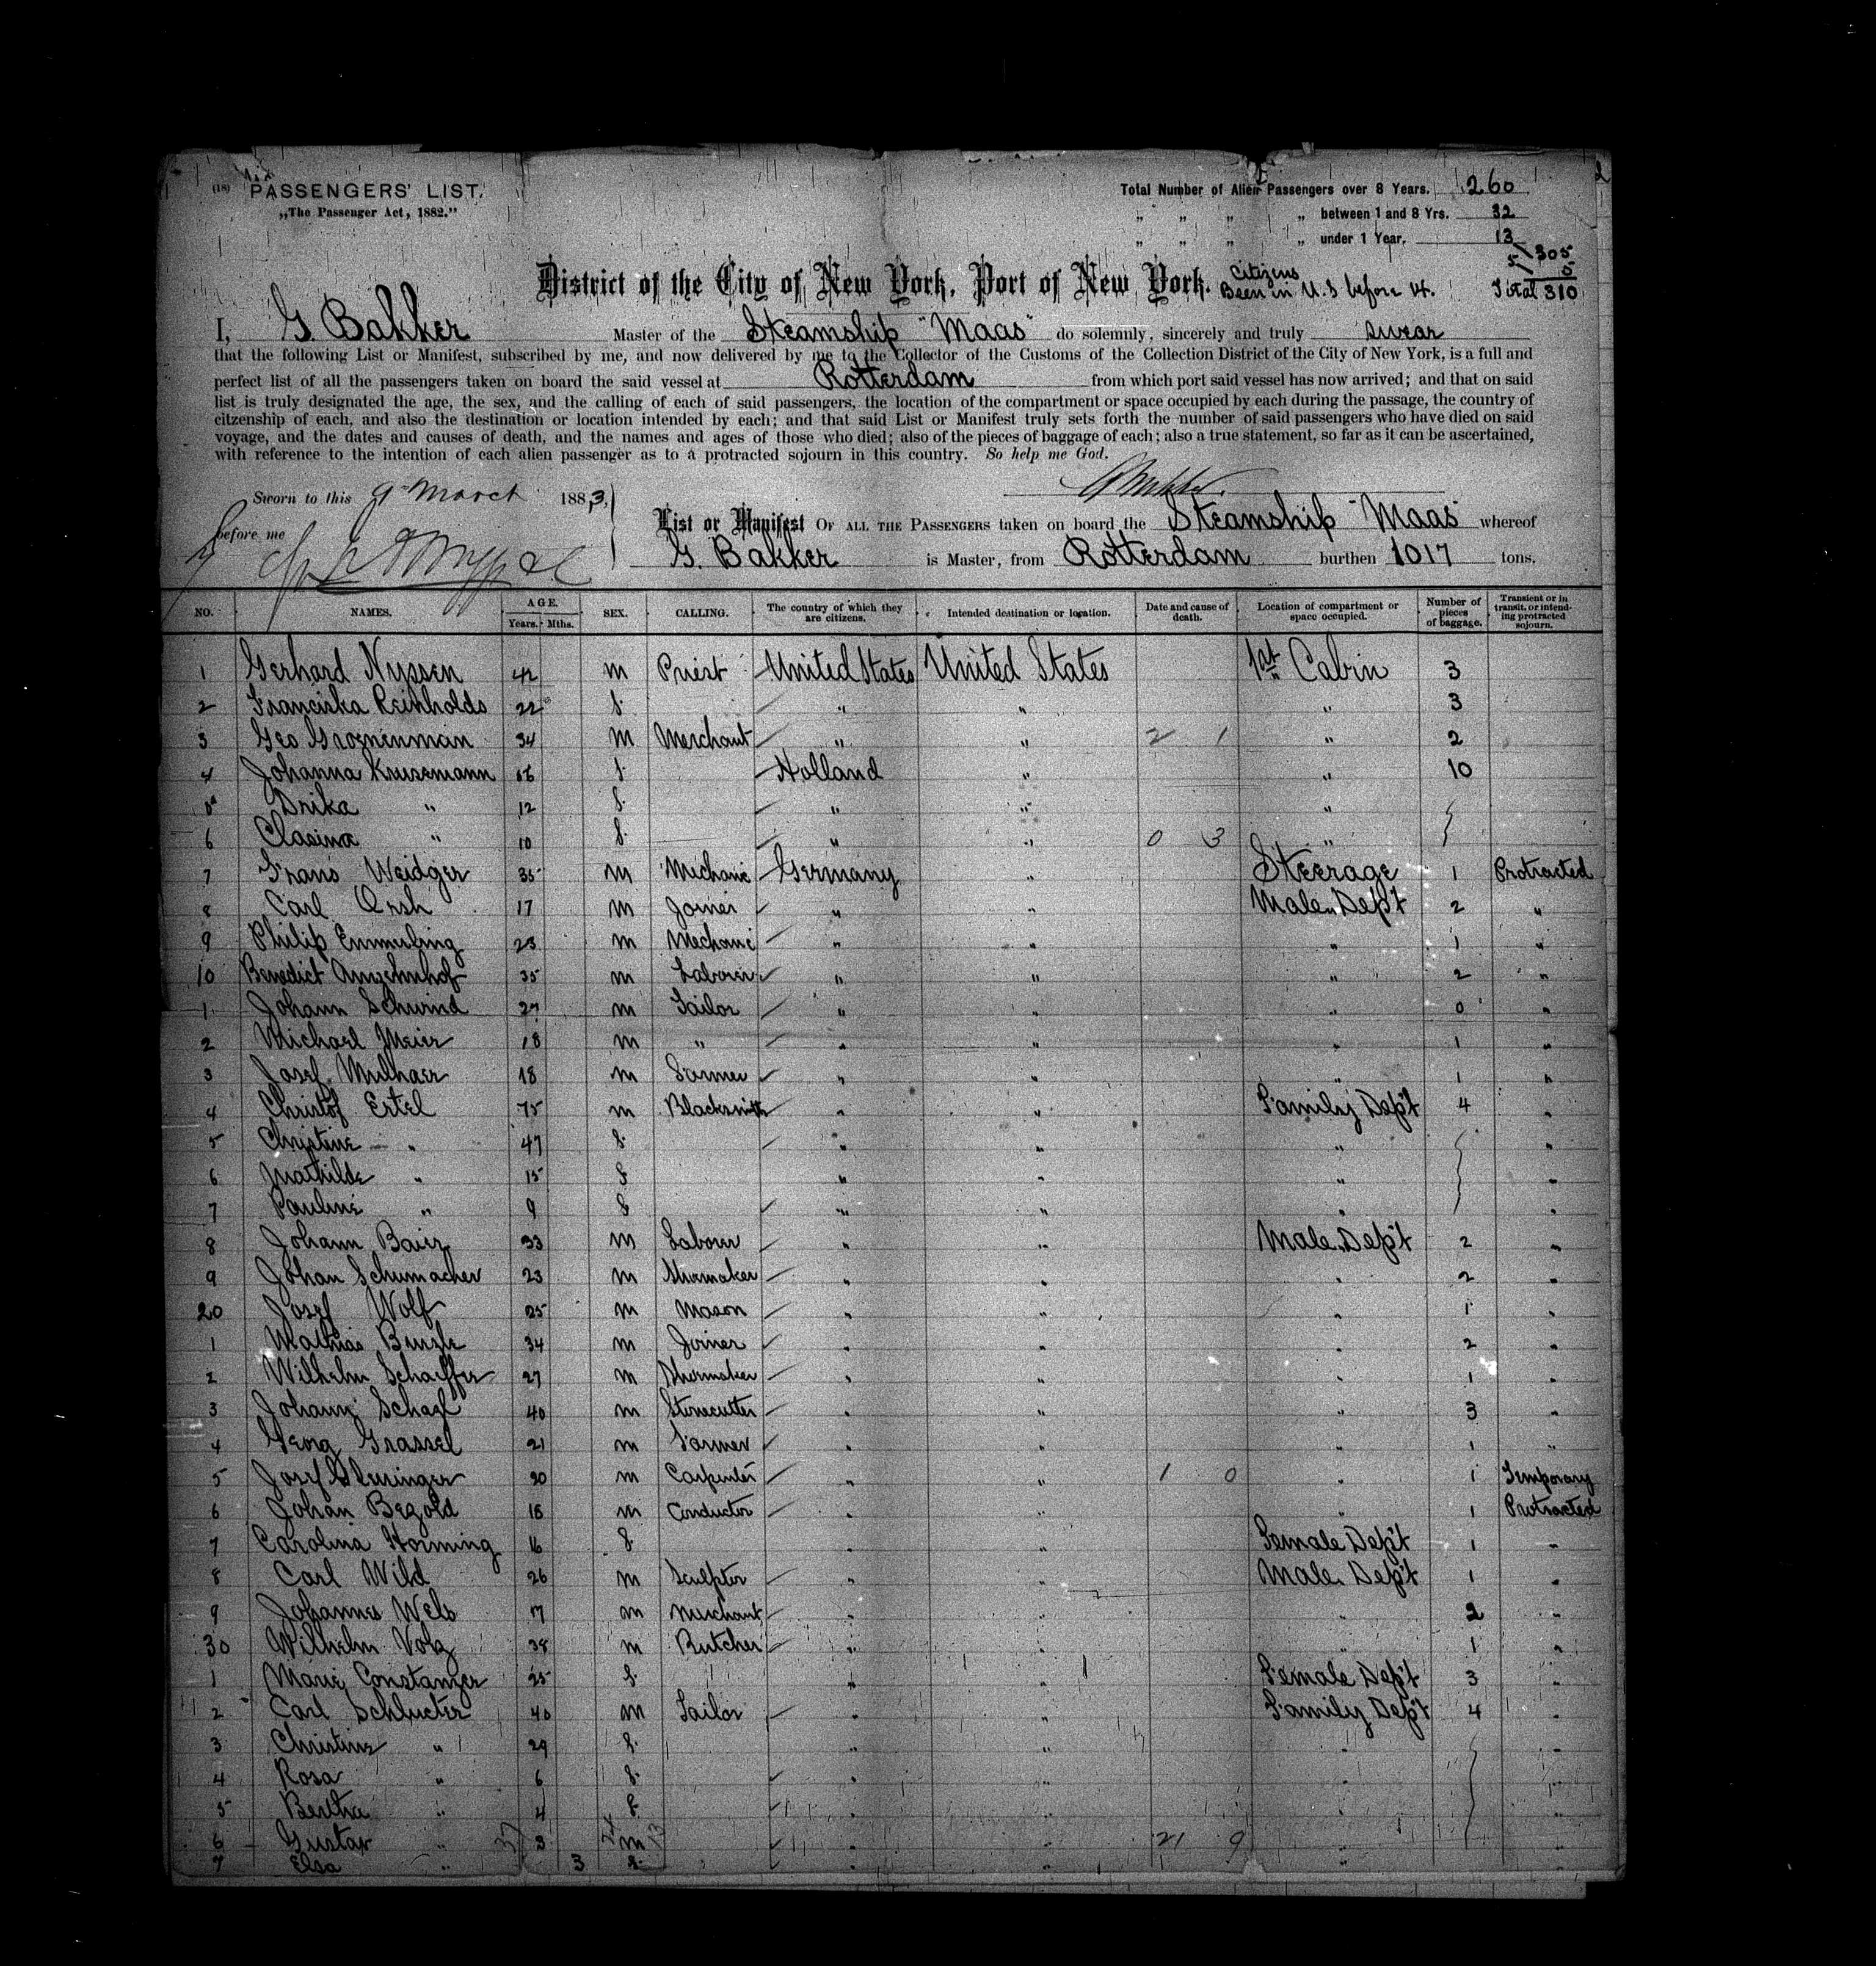 (18) PASSENGERS' LIST.
„The Passenger Act, 1882."
Total Number of Alien Passengers over 8 Years. 260
„ „ „ „ between 1 and 8 Yrs. 32
„ „ „ „ under 1 Year. 13
305
5 5
Citizens
District of the City of New York, Port of New York. Been in U.S before 4. Total 310
I, G. Bakker Master of the Steamship "Maas" do solemnly, sincerely and truly swear
that the following List or Manifest, subscribed by me, and now delivered by me to the Collector of the Customs of the Collection District of the City of New York, is a full and
perfect list of all the passengers taken on board the said vessel at Rotterdam from which port said vessel has now arrived; and that on said
list is truly designated the age, the sex, and the calling of each of said passengers, the location of the compartment or space occupied by each during the passage, the country of
citzenship of each, and also the destination or location intended by each; and that said List or Manifest truly sets forth the number of said passengers who have died on said
voyage, and the dates and causes of death, and the names and ages of those who died; also of the pieces of baggage of each; also a true statement, so far as it can be ascertained,
with reference to the intention of each alien passenger as to a protracted sojourn in this country. So help me God.
Sworn to this 9 March 1883. G Bakker
before me
List or Manifest OF ALL THE PASSENGERS taken on board the Steamship "Maas" whereof
G. Bakker is Master, from Rotterdam burthen 1017 tons.
NO. NAMES. AGE. Years. Mths. SEX. CALLING. The country of which they are citizens. Intended destination or location. Date and cause of death. Location of compartment or space occupied. Number of pieces of baggage. Transient or in transit, or intending protracted sojourn.
1 Gerhard Nyssen 42 m Priest United States United States 1st Cabin 3
2 Franciska Reinholds 22 f. " " " 3
3 Geo Groenenman 34 m Merchant " " 2 1 " 2
4 Johanna Krusemann 16 f. Holland " " 10
5 Drika " 12 f. " " "
6 Clasina " 10 f. " " 0 3 "
7 Frans Weidger 35 m Mechanic Germany " Steerage 1 Protracted
8 Carl 17 m Joiner " " Male Dep't 2 "
9 Philip Emmerling 23 m Mechanic " " " 1 "
10 Benedict 35 m Laborer " " " 2 "
1 Johann Schwind 27 m Tailor " " " 0 "
2 Michael Meier 18 m " " " " 1 "
3 Josef 18 m Farmer " " " 1 "
4 Christof Ertel 75 m Blacksmith " " Family Dep't 4 "
5 Christine " 47 f. " " " "
6 Mathilde " 15 f " " " "
7 Pauline " 9 f " " " "
8 Johann Baier 33 m Labourer " " Male Dep't 2 "
9 Johan Schumacher 23 m Shoemaker " " " 2 "
20 Josef Wolf 25 m Mason " " " 1 "
1 Mathias 34 m Joiner " " " 2 "
2 Wilhelm Schaeffer 27 m Shoemaker " " " 1 "
3 Johann Schaaf 40 m Stonecutter " " " 3 "
4 Georg Grassel 21 m Farmer " " " 1 "
5 Josef 20 m Carpenter " " 1 0 " 1 Temporary
6 Johan Bezold 18 m Conductor " " " 1 Protracted
7 Carolina Horming 16 f " " Female Dep't 1 "
8 Carl Wild 26 m Sculptor " " Male Dep't 1 "
9 Johannes Wels 17 m Merchant " " " 2 "
30 Wilhelm Volz 38 m Butcher " " " 1 "
1 Marie Constanzer 25 f. " " Female Dep't 3 "
2 Carl Schlucter 40 m Tailor " " Family Dep't 4 "
3 Christine " 29 f. " " " "
4 Rosa " 6 f. " " " "
5 Bertha " 4 f. " " " "
6 Gustav " 3 m " " 21 9 " "
7 Elsa " 3 f. " " " "